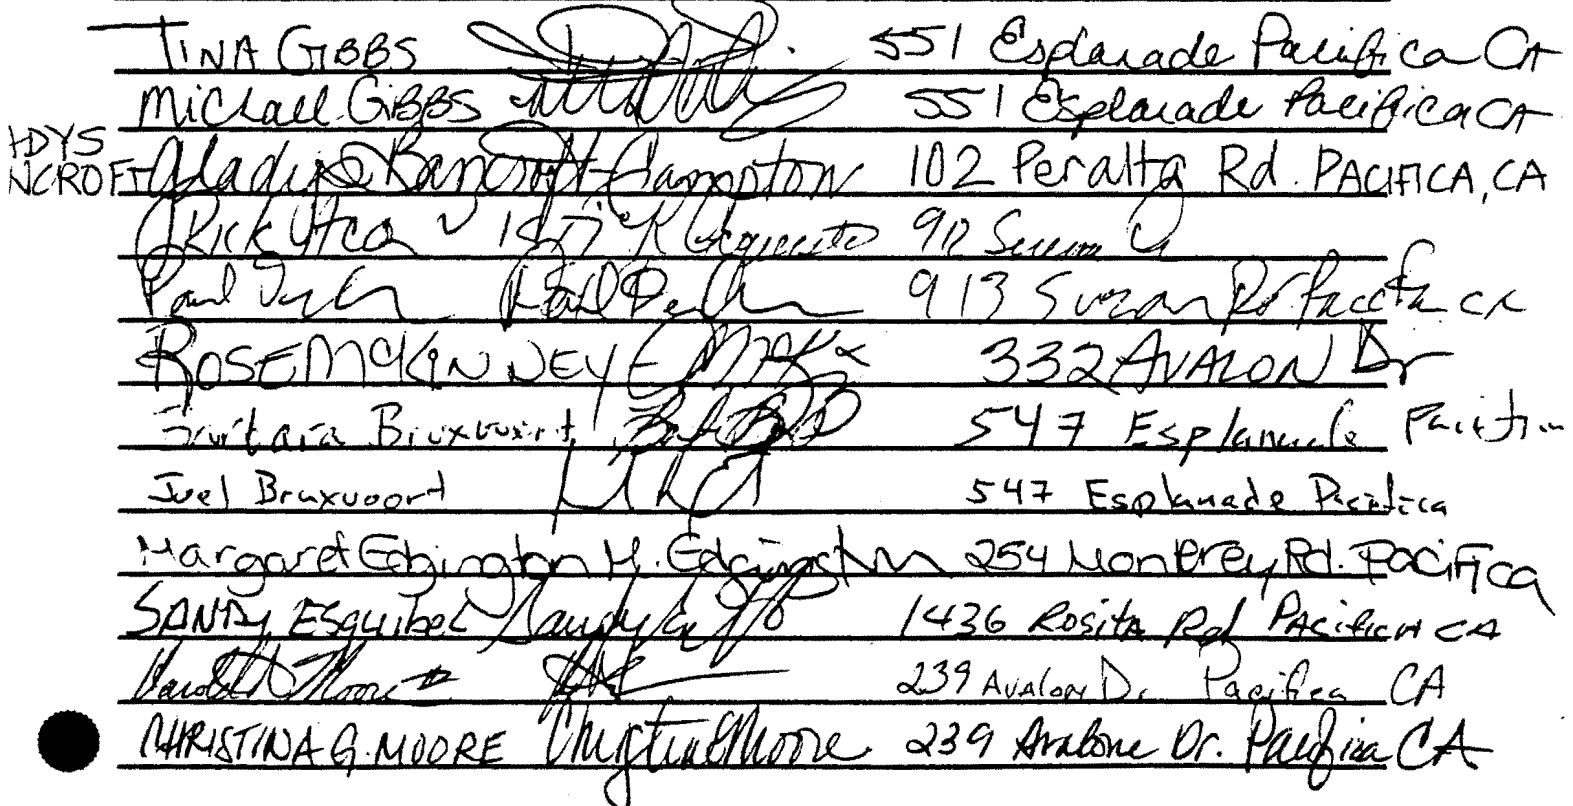 TINA GIBBS 551 Esplanade Pacifica CA
Michael GIBBS 551 Esplanade Pacifica CA
ADYS
NCROFT Gladys Bancroft-Hampton 102 Peralta Rd. PACIFICA, CA
Rick 912
Paul 913 Pacifica CA
ROSE MCKINNEY 332 AVALON Dr
Barbara Bruxvoort 547 Esplanade Pacifica
Joel Bruxvoort 547 Esplanade Pacifica
Margaret Edgington M. Edgington 254 Monterey Rd. PACIFICA
SANDY ESquibel Sandy 1436 Rosita Rd PACifica CA
Harold Moore 239 AVALON Dr Pacifica CA
CHRISTINA G. MOORE Christina Moore 239 Avalone Dr. Pacifica CA